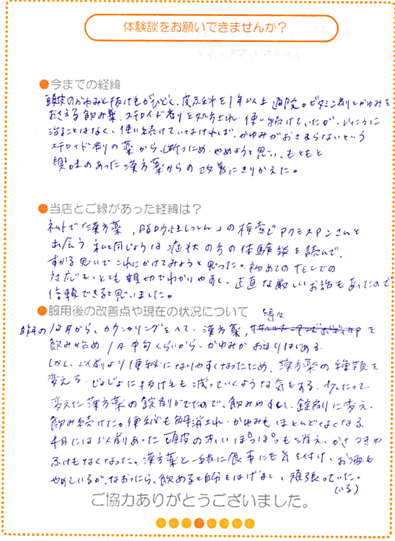 体験談をお願いできませんか?
●今までの経緯
頭皮のかゆみと抜け毛がひどく、皮フ科を1年以上通院。ビタミン剤とかゆみを
おさえる飲み薬、ステロイド剤を処方され、使い続けていたが、いっこうに
治ることはなく、使い続けていなければ、かゆみがおさまらないという
ステロイド剤の薬から、断つため、やめようと思い、もともと
興味のあった漢方薬からの改善にきりかえた。
●当店とご縁があった経緯は?
ネットで「漢方薬、脂ろう性しっしん」の検索でアクミスアンさんと
出会う 私と同じような症状の方の体験談を読んで、
すがる思いでこれにかけてみようと思った。初めてのTELでの
対応も、とても親切でわかりやすく、正直な厳しいお話もあったので
信頼できると思いました。
●服用後の改善点や現在の状況について
10月から、カウンセリングをへて、漢方薬、を
飲み始め、1月中旬くらいから、かゆみがおさまりはじめる。
しかし、以前より便秘になりやすくなったため、漢方薬の種類を
変えて じょじょに抜け毛も減っていくような気がする。
変えた漢方薬の錠剤がでたので、飲みやすいし、錠剤に変え、
飲み続けた。便秘も解消され、かゆみもほとんどなくなる
4月には以前あった頭皮の赤いぽつぽつも消え、かさつきや
ふけもなくなった。漢方薬と一緒に食事にも気を付け、お酒も
やめているが、なおったら、飲めると自分をはげまし、頑張っていた。
(いる)
ご協力ありがとうございました。